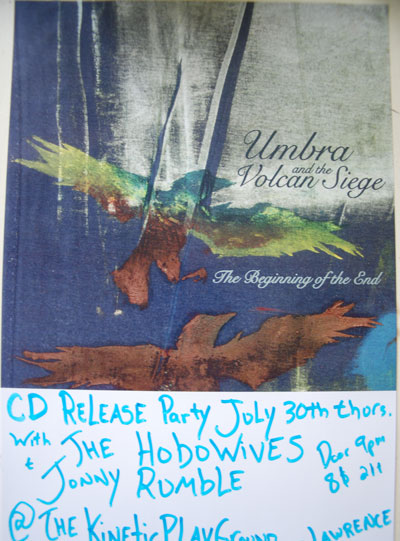 Umbra
and the
Volcan Siege
The Beginning of the End
CD ReLease Party July 30th thors.
With THE HOBOWIVES
& JONNY RUMBLE
Door 9pm
8$ 21+
@ THE KINETIC PLAYGROUND LAWRENCE